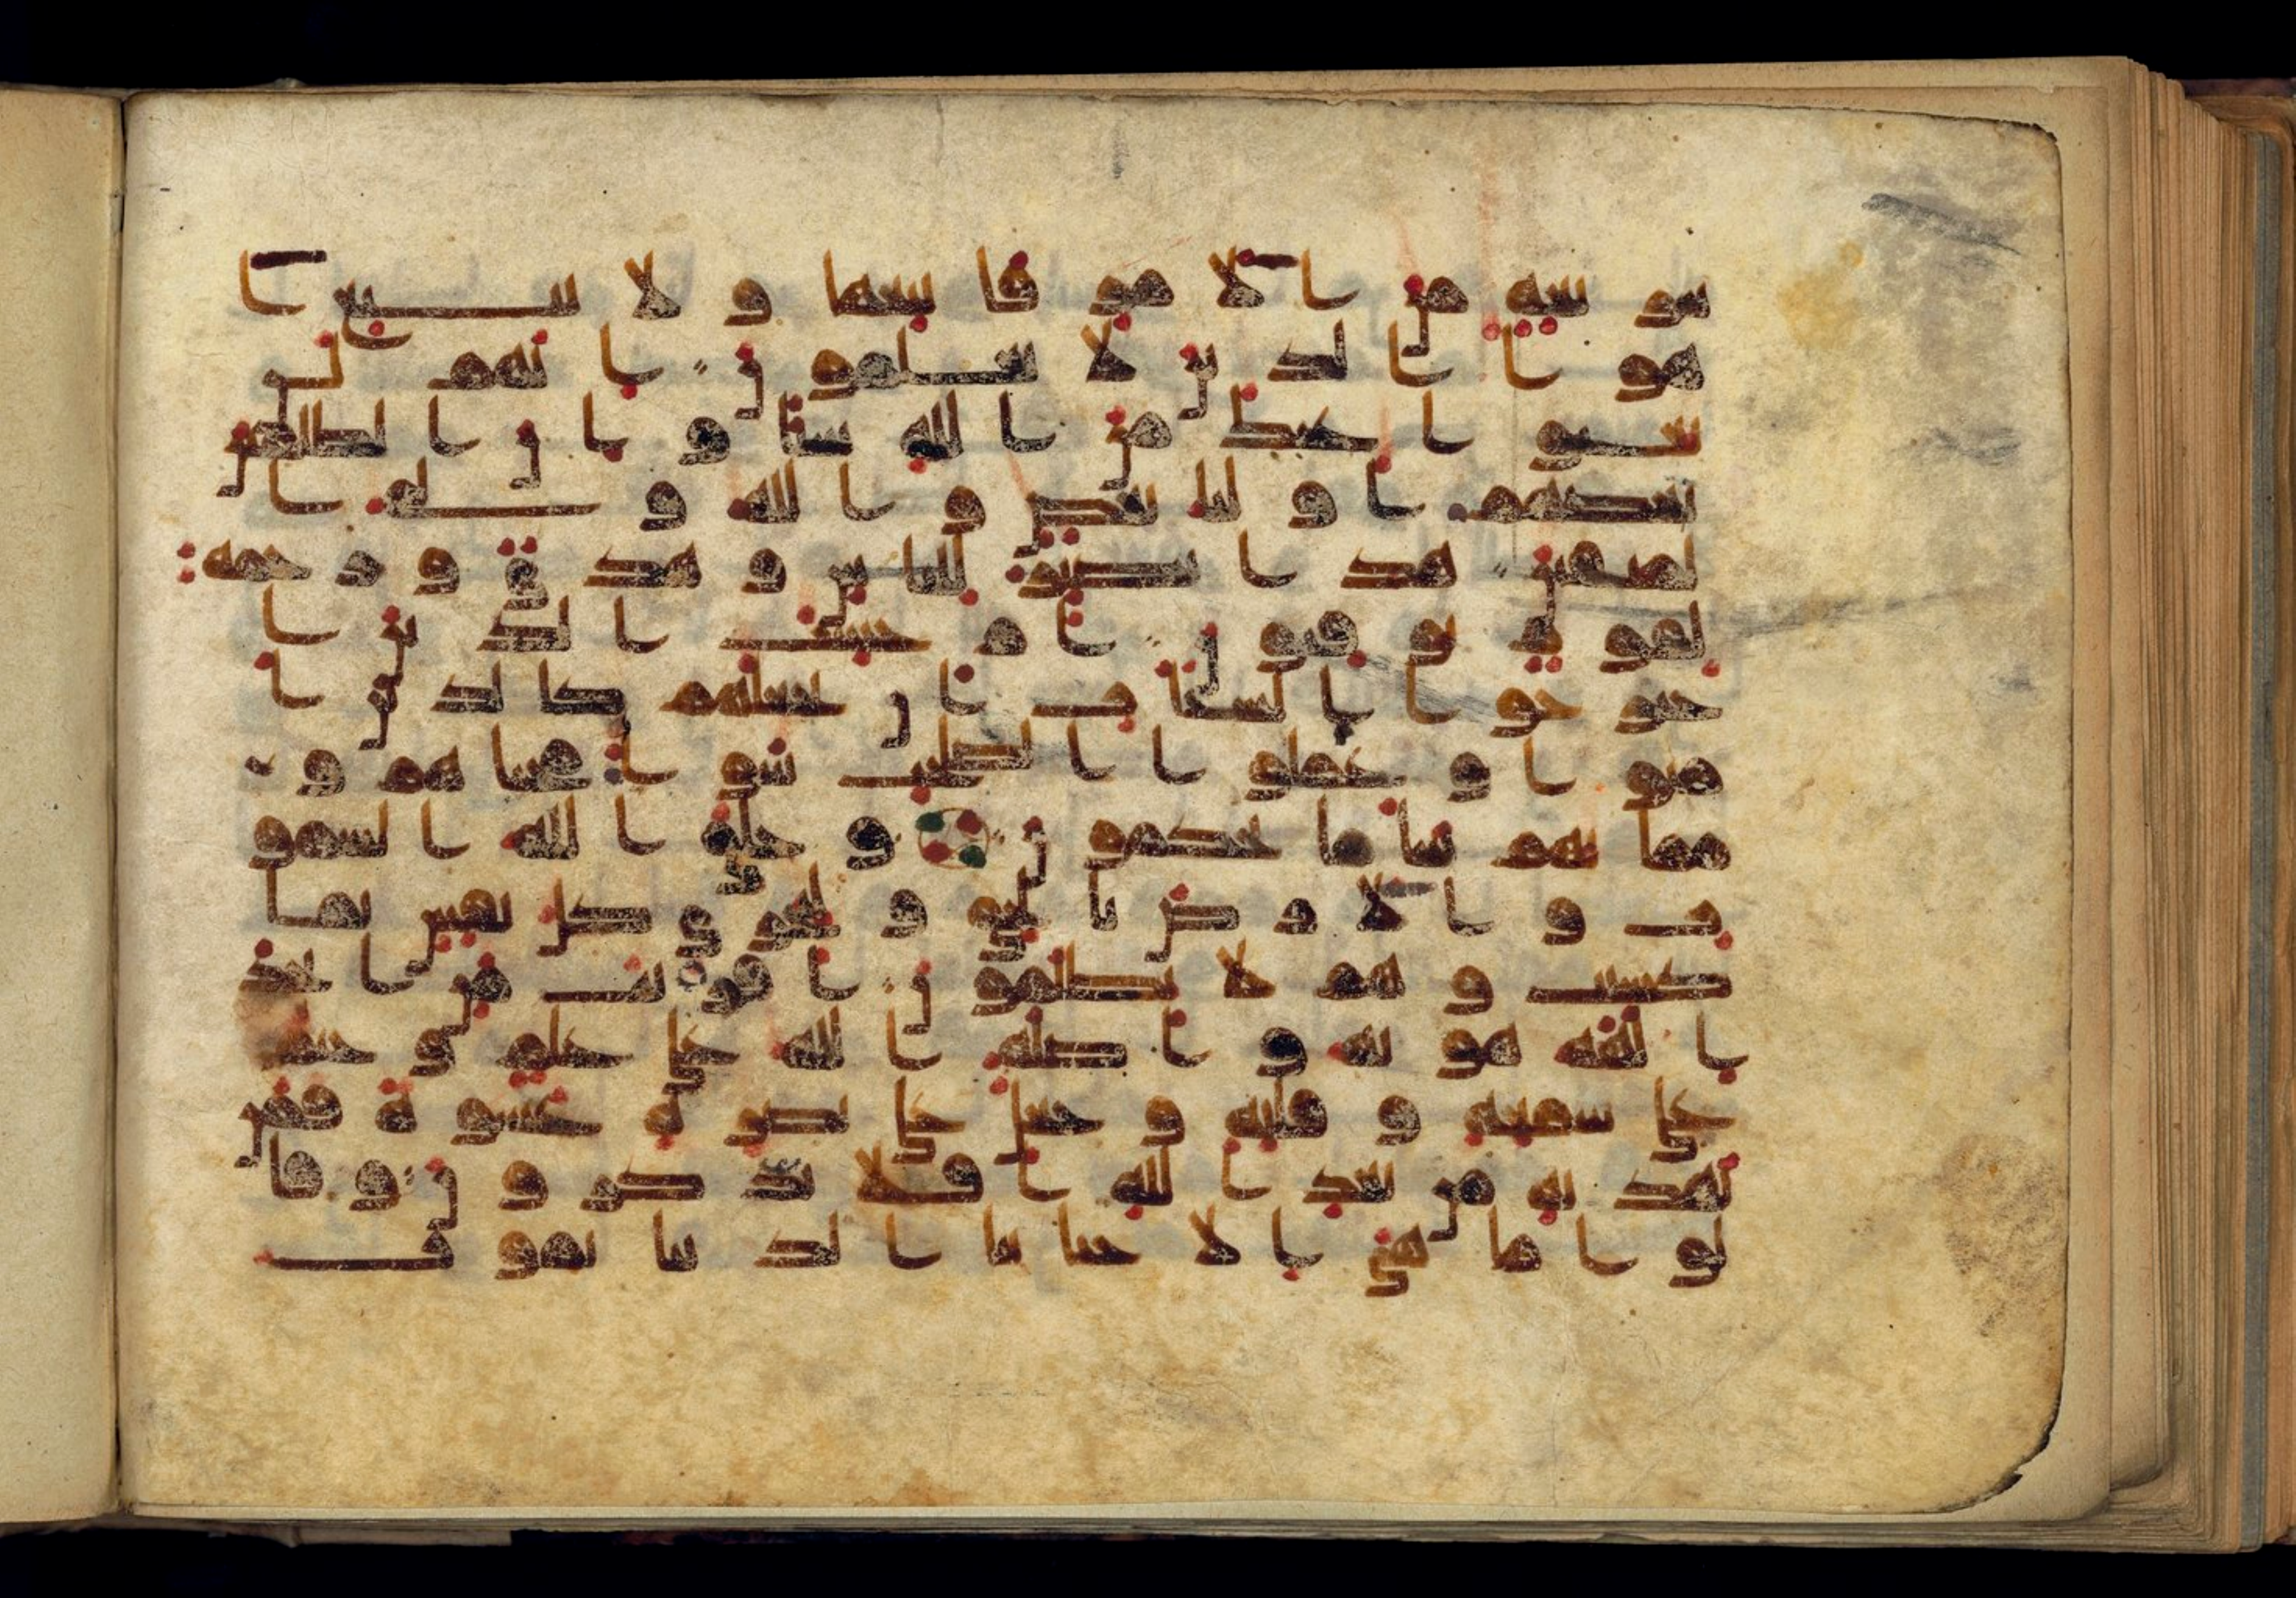 شريعة من الامر فاتبعها ولا تتبع ا
هوا الذين لا يعلمون انهم لن
يغنوا عنك من الله شيا وان الظلمين
بعضهم اوليا بعض والله ولي ا
لمتقين هذا بصير للناس وهدى ورحمة
لقوم يوقنون ام حسب الذين ا
جترحوا السيات ان نجعلهم كالذين ا
منوا وعملوا الصلحت سوا محياهم و
مماتهم سا ما يحكمون وخلق الله السمو
ت والارض بالحق ولتجزى كل نفس بما
كسبت وهم لا يظلمون افريت من اتخذ
الهه هويه واضله الله على علم وختم
على سمعه وقلبه وجعل على بصره غشوة فمن
يهديه من بعد الله افلا تذكرون وقا
لوا ما هي الا حياتنا الدنيا نموت